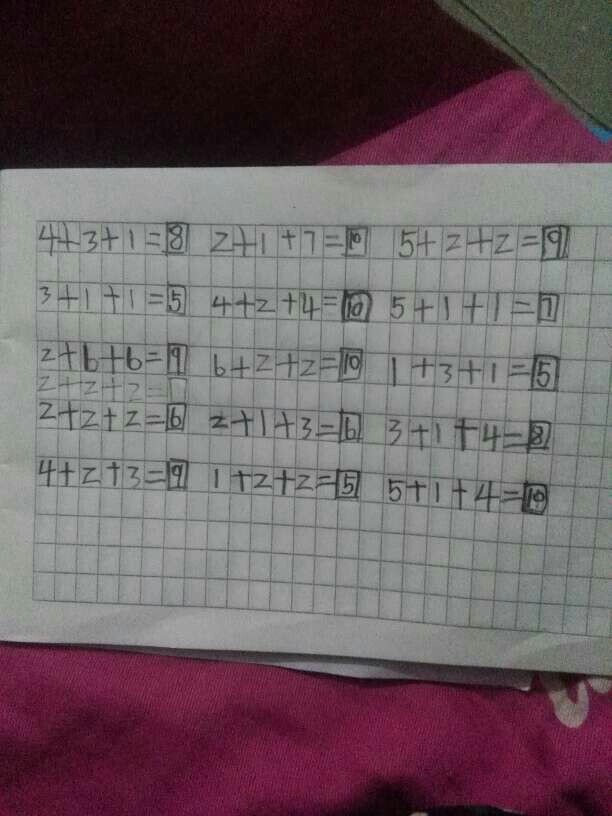 4+3+1=8 2+1+7=10 5+2+2=9
3+1+1=5 4+2+4=10 5+1+1=7
2+6+6=9 6+2+2=10 1+3+1=5
2+2+2=
2+2+2=6 2+1+3=6 3+1+4=8
4+2+3=9 1+2+2=5 5+1+4=10